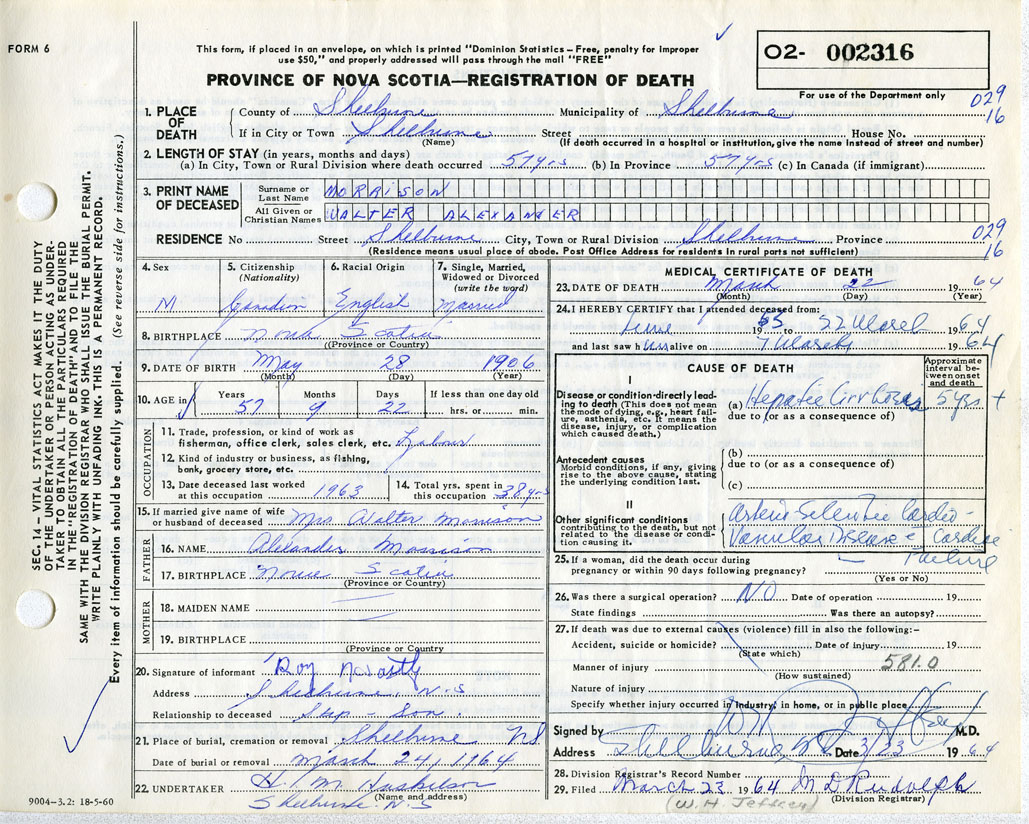 FORM 6
This form, if placed in an envelope, on which is printed "Dominion Statistics – Free, penalty for improper
use $50," and properly addressed will pass through the mail "FREE"
PROVINCE OF NOVA SCOTIA—REGISTRATION OF DEATH
O2- 002316
For use of the Department only
029
16
1. PLACE OF DEATH
County of Shelburne Municipality of Shelburne
If in City or Town Shelburne Street House No.
(Name) (If death occurred in a hospital or institution, give the name instead of street and number)
2. LENGTH OF STAY (in years, months and days)
(a) In City, Town or Rural Division where death occurred 57 yrs (b) In Province 57 yrs (c) In Canada (if immigrant)
3. PRINT NAME OF DECEASED
Surname or Last Name MORRISON
All Given or Christian Names WALTER ALEXANDER
RESIDENCE No Street Shelburne City, Town or Rural Division Shelburne Province
029
16
(Residence means usual place of abode. Post Office Address for residents in rural parts not sufficient)
4. Sex
M
5. Citizenship (Nationality)
6. Racial Origin
English
7. Single, Married, Widowed or Divorced (write the word)
Married
8. BIRTHPLACE Nova Scotia
(Province or Country)
9. DATE OF BIRTH May 28 1906
(Month) (Day) (Year)
10. AGE in
Years Months Days If less than one day old
57 9 22 hrs. or min.
OCCUPATION
11. Trade, profession, or kind of work as
fisherman, office clerk, sales clerk, etc. Labour
12. Kind of industry or business, as fishing,
bank, grocery store, etc.
13. Date deceased last worked at this occupation 1963
14. Total yrs. spent in this occupation 38 yrs
15. If married give name of wife
or husband of deceased Mrs. Walter Morrison
FATHER
16. NAME Alexander Morrison
17. BIRTHPLACE Nova Scotia
(Province or Country)
MOTHER
18. MAIDEN NAME
19. BIRTHPLACE
(Province or Country)
20. Signature of informant Roy
Address Shelburne, N.S
Relationship to deceased Step - Son.
21. Place of burial, cremation or removal Shelburne NS
Date of burial or removal March 24, 1964
22. UNDERTAKER H. M. Huskilson
(Name and address)
Shelburne N.S
9004—3.2: 18-5-60
MEDICAL CERTIFICATE OF DEATH
23. DATE OF DEATH March 22 1964
(Month) (Day) (Year)
24. I HEREBY CERTIFY that I attended deceased from:
June 19 to 22 March 1964
and last saw him alive on 7 March 1964
CAUSE OF DEATH
Approximate interval between onset and death
I
Disease or condition directly leading to death (This does not mean the mode of dying, e.g., heart failure, asthenia, etc. It means the disease, injury, or complication which caused death.)
(a) Hepatic Cirrhosis 5 yrs +
due to (or as a consequence of)
Antecedent causes
Morbid conditions, if any, giving rise to the above cause, stating the underlying condition last.
(b)
due to (or as a consequence of)
(c)
II
Other significant conditions
contributing to the death, but not related to the disease or condition causing it.
Arterio Sclerotic Cardio-
Vascular Disease c Cardiac
Failure
25. If a woman, did the death occur during
pregnancy or within 90 days following pregnancy?
(Yes or No)
26. Was there a surgical operation? NO Date of operation 19
State findings Was there an autopsy?
27. If death was due to external causes (violence) fill in also the following:—
Accident, suicide or homicide? Date of injury 19
(State which)
581.0
Manner of injury
(How sustained)
Nature of injury
Specify whether injury occurred in industry, in home, or in public place
Signed by M.D.
Address Shelburne, NS Date 3/23 1964
28. Division Registrar's Record Number
29. Filed March 23 1964 M D Rudolph
(W. H. Jeffrey) (Division Registrar)
SEC. 14 — VITAL STATISTICS ACT MAKES IT THE DUTY
OF THE UNDERTAKER OR PERSON ACTING AS UNDER-
TAKER TO OBTAIN ALL THE PARTICULARS REQUIRED
IN THE "REGISTRATION OF DEATH" AND TO FILE THE
SAME WITH THE DIVISION REGISTRAR WHO SHALL ISSUE THE BURIAL PERMIT.
WRITE PLAINLY WITH UNFADING INK. THIS IS A PERMANENT RECORD.
Every item of information should be carefully supplied. (See reverse side for instructions.)